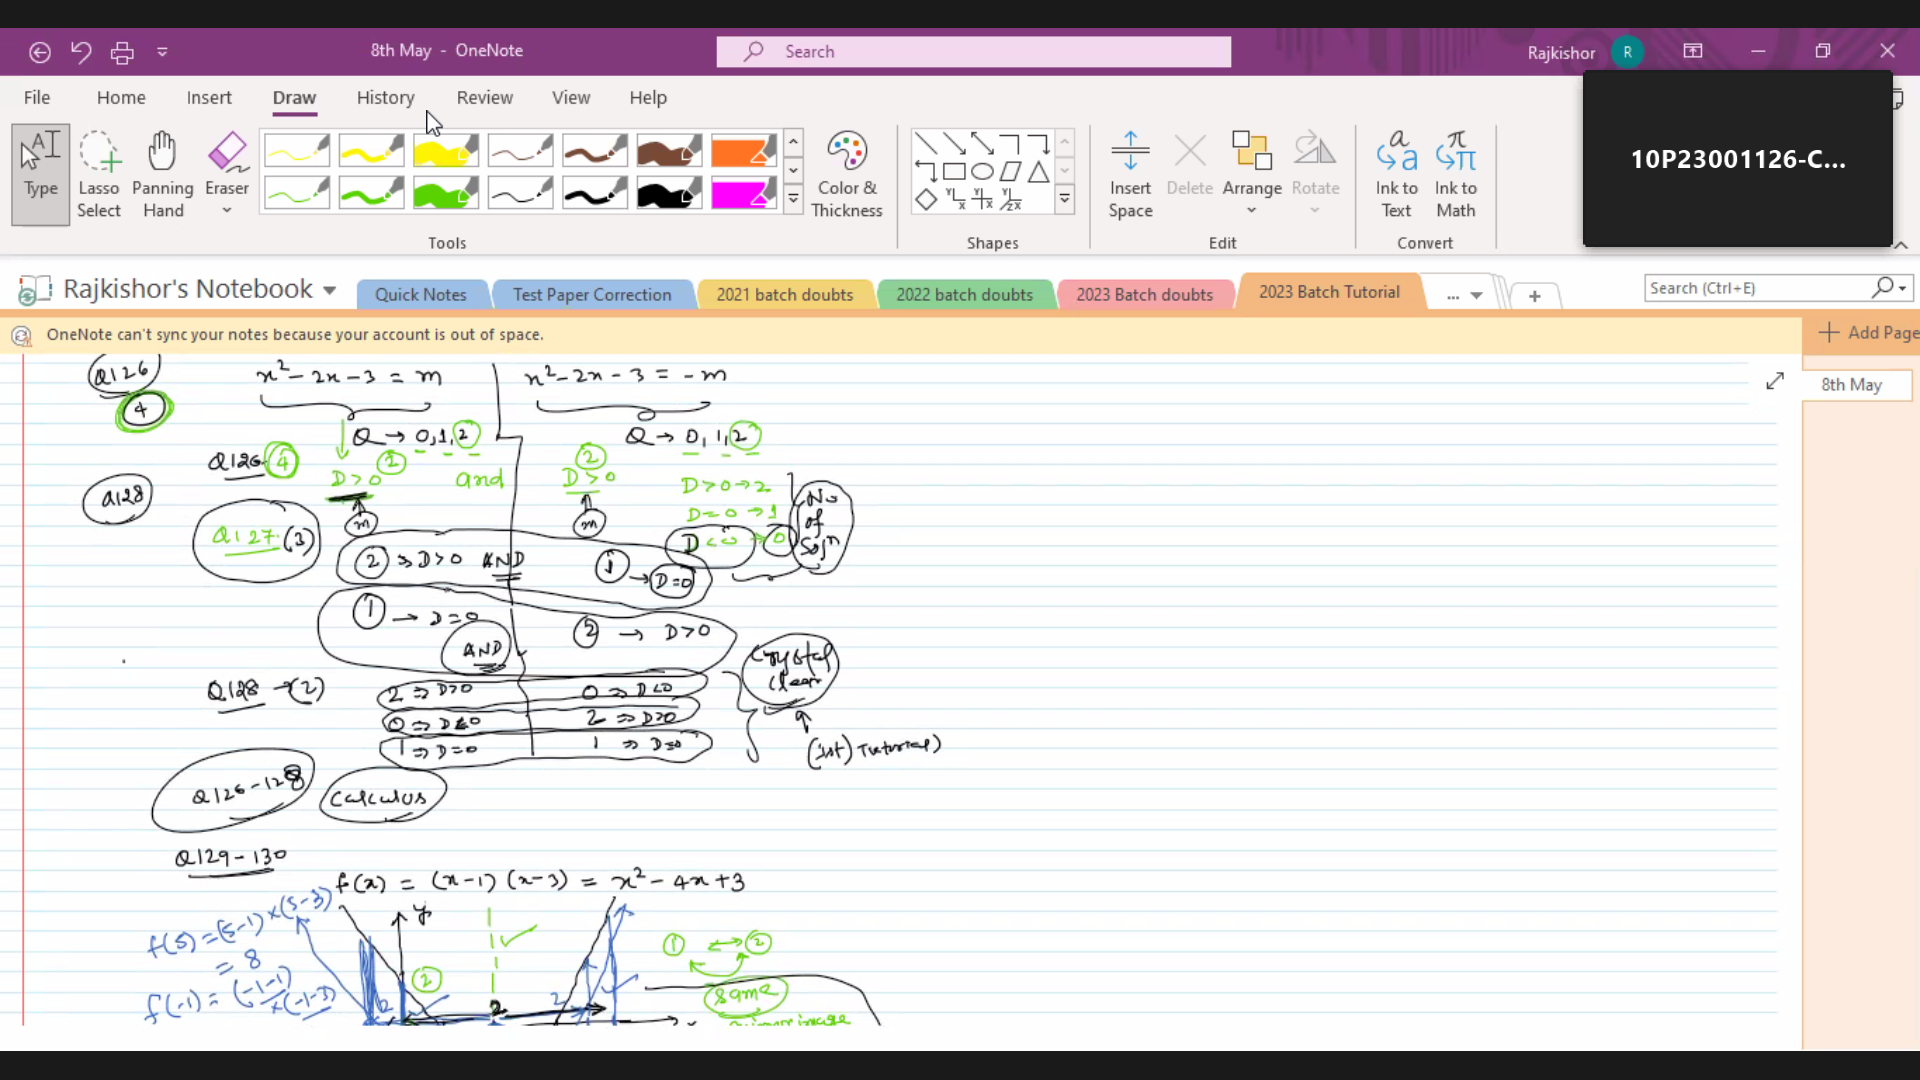 8th May - OneNote
Search
Rajkishor
R
File Home Insert Draw History Review View Help
10P23001126-C...
Type
Lasso Select
Panning Hand
Eraser
Color & Thickness
Insert Space
Delete
Arrange
Rotate
Ink to Text
Ink to Math
Tools
Shapes
Edit
Convert
Rajkishor's Notebook
Quick Notes
Test Paper Correction
2021 batch doubts
2022 batch doubts
2023 Batch doubts
2023 Batch Tutorial
...
Search (Ctrl+E)
OneNote can't sync your notes because your account is out of space.
Add Page
8th May
Q126
x² - 2x - 3 = m
x² - 2x - 3 = -m
4
Q → 0, 1, 2
Q → 0, 1, 2
Q126 4
2
2
D > 0 and D > 0
D > 0 → 2
Q128
m
m
D = 0 → 1
Q127. (3)
D < 0 → 0
No of Soln
2 ⇒ D > 0 AND 1 → D = 0
1 → D = 0
AND
2 → D > 0
Crystal Clear
Q128 → (2)
2 ⇒ D > 0
0 ⇒ D < 0
0 ⇒ D < 0
2 ⇒ D > 0
1 ⇒ D = 0
1 ⇒ D = 0
(1st) Tutorial)
Q126 - 128
Calculus
Q129 - 130
f(x) = (x-1) (x-3) = x² - 4x + 3
f(5) = (5-1) × (5-3)
= 8
f(-1) = (-1-1) × (-1-3)
y
2
2
2
2
1 ↔ 2
same